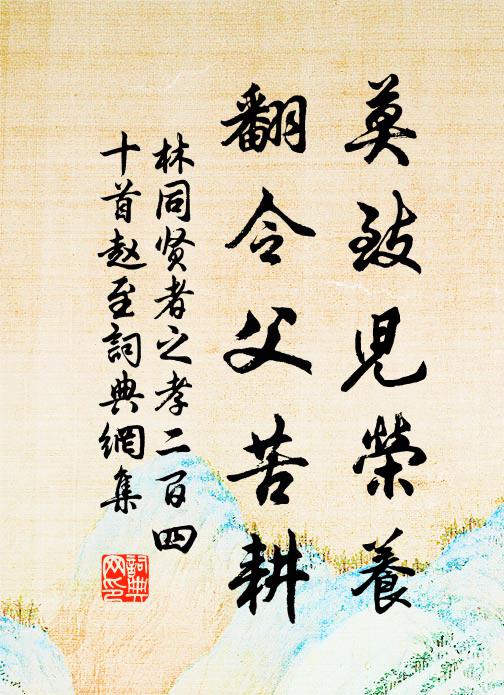 莫致児榮養
翻令父苦耕
林同贤者之孝二百四
十首赵至詞典網集
詞典
网印